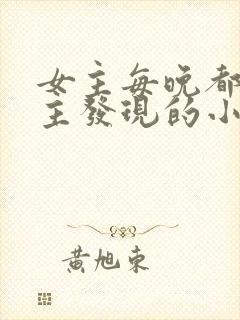 女主每晚都
主發現的小
黃旭東